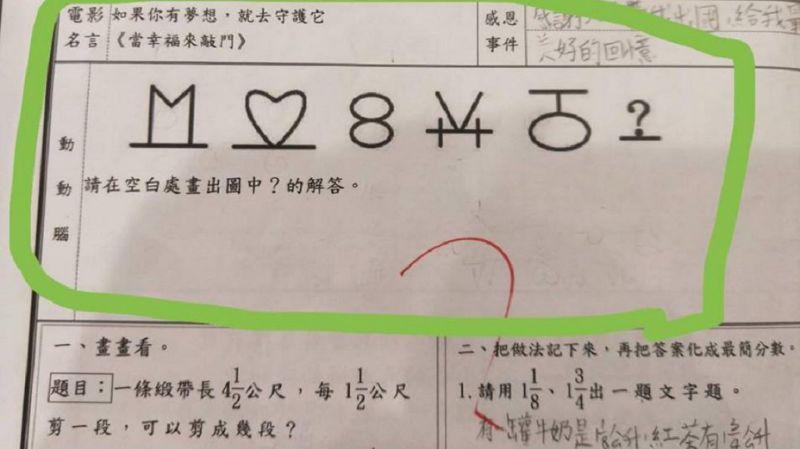 電影 如果你有夢想，就去守護它
名言 《當幸福來敲門》
感恩
事件
給我
美好的回憶
動動腦
?
請在空白處畫出圖中？的解答。
一、畫畫看。
題目：一條緞帶長4 1/2公尺，每1 1/2公尺
剪一段，可以剪成幾段？
二、把做法記下來，再把答案化成最簡分數。
1.請用1 1/8、1 3/4出一題文字題。
罐牛奶是 公升，紅茶有 公升